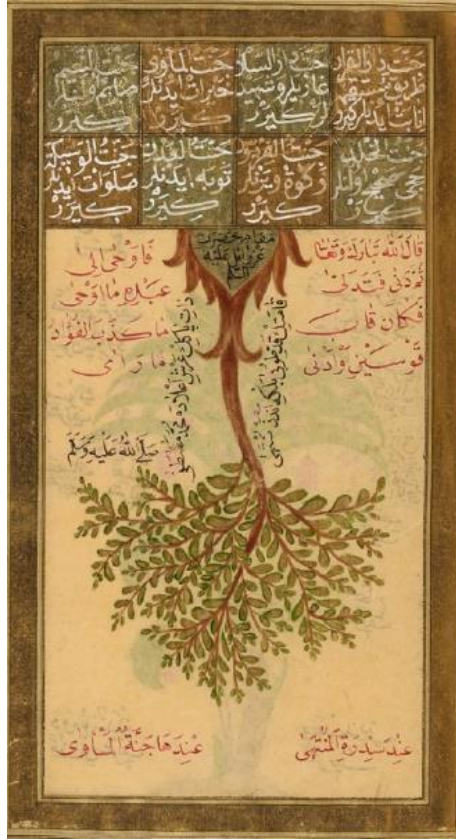 جنت دار القرار
طريق مستقيمه
انابت ايدنلر كيرر
جنت دار السلام
غازيلر و شهيد
لر كيرر
جنت المأوى
خيرات ايدنلر
كيرر
جنت النعيم
صايم اولنلر
كيرر
جنت الخلد
حجى صحيح اولنلر
كيرر
جنت الفردوس
زكوة ويرنلر
كيرر
جنت العدن
توبه ايدنلر
كيرر
جنت الوسيلة
صلوات ايدنلر
كيرر
مقام حضرت
عليه
السلام
قال الله تبارك وتعا
ثم دنى فتدلى
فكان قاب
قوسين او ادنى
فاوحى الى
عبده ما اوحى
ما كذب الفؤاد
ما راى
صلى الله عليه وسلم
عند سدرة المنتهى
عندها جنة المأوى